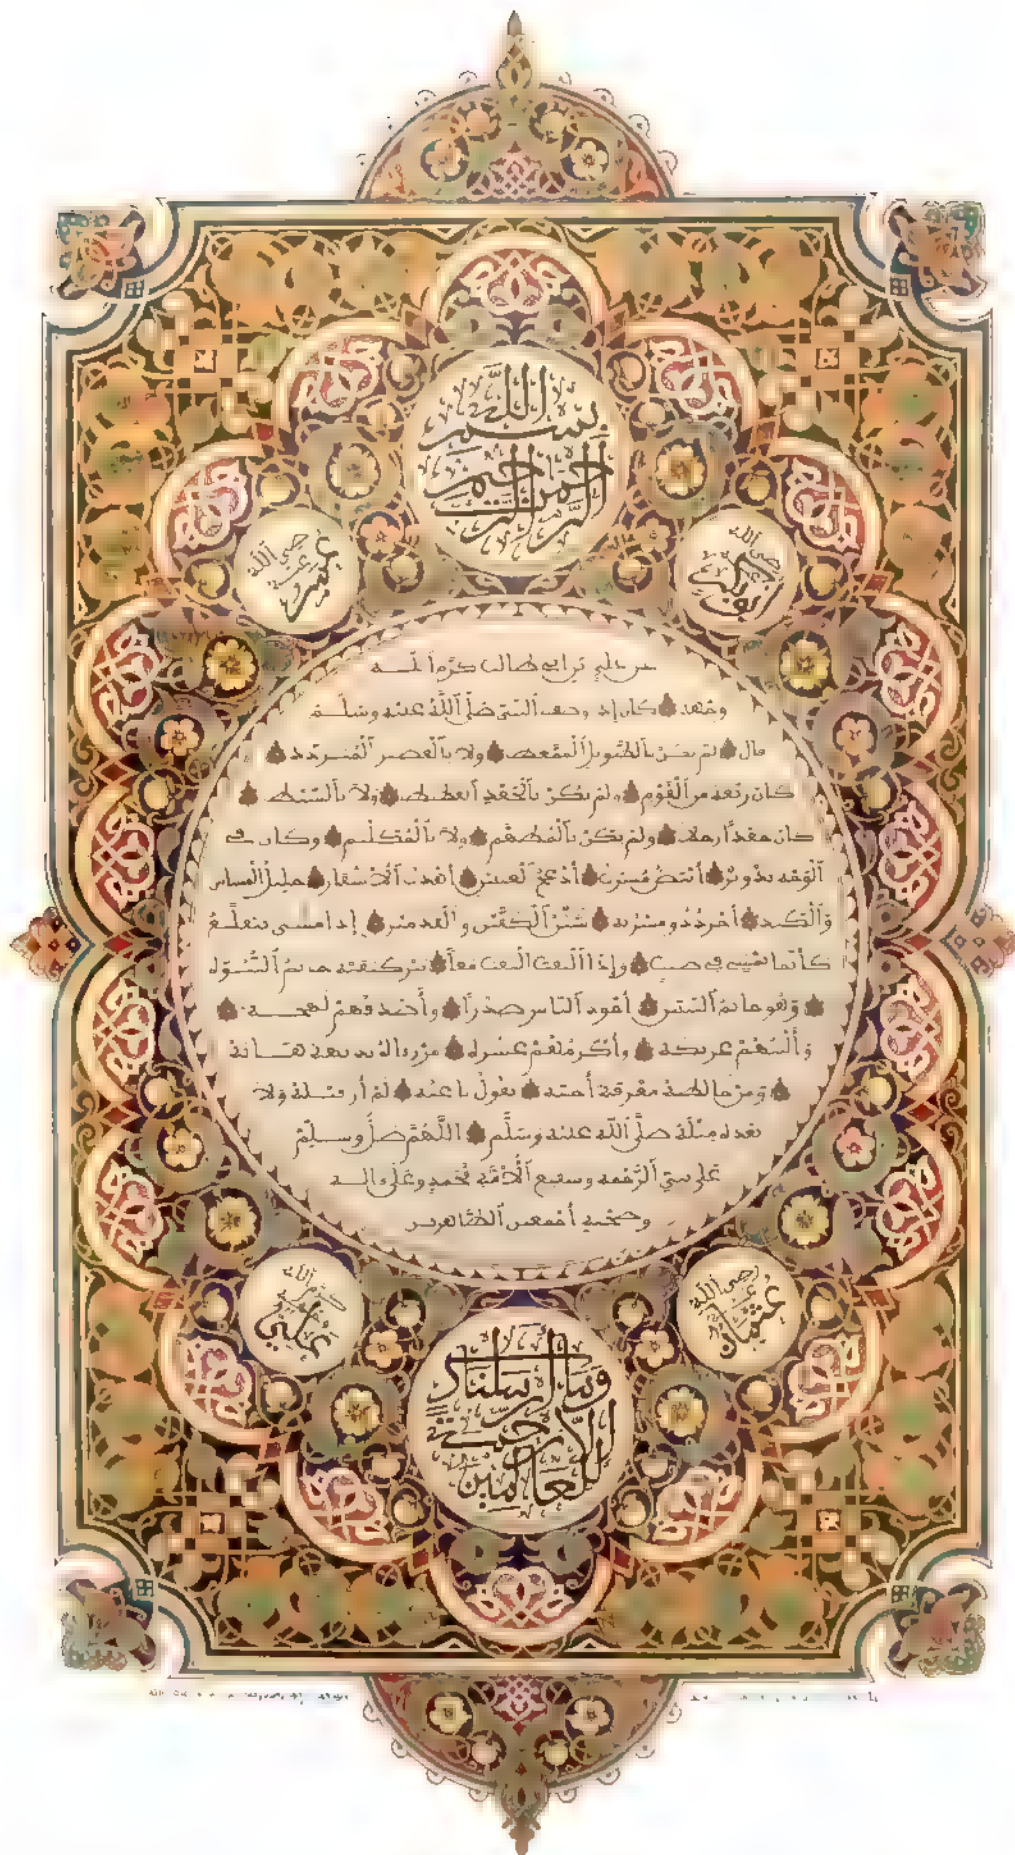 بِسْمِ اللَّهِ
الرَّحْمَنِ الرَّحِيمِ
أبو بكر رضي الله عنه
عمر رضي الله عنه
عن علي بن أبي طالب كرّم الله
وجهه كان إذا وصف النبي صلى الله عليه وسلم
قال لم يكن بالطويل الممغط ولا بالقصير المتردد
كان ربعة من القوم ولم يكن بالجعد القطط ولا بالسبط
كان جعدا رجلا ولم يكن بالمطهم ولا بالمكلثم وكان في
الوجه تدوير أبيض مشرب أدعج العينين أهدب الأشفار جليل المشاش
والكتد أجرد ذو مسربة شثن الكفين والقدمين إذا مشى يتقلع
كأنما يمشي في صبب وإذا التفت التفت معا بين كتفيه خاتم النبوة
وهو خاتم النبيين أجود الناس صدرا وأصدقهم لهجة
وألينهم عريكة وأكرمهم عشرة من رءاه بديهة هابه
ومن خالطه معرفة أحبه يقول ناعته لم أر قبله ولا
بعده مثله صلى الله عليه وسلم اللهم صل وسلم
على نبي الرحمة وشفيع الأمة محمد وعلى ءاله
وصحبه أجمعين الطاهرين
عثمان رضي الله عنه
علي كرم الله وجهه
وَمَا أَرْسَلْنَاكَ
إِلَّا رَحْمَةً
لِلْعَالَمِينَ